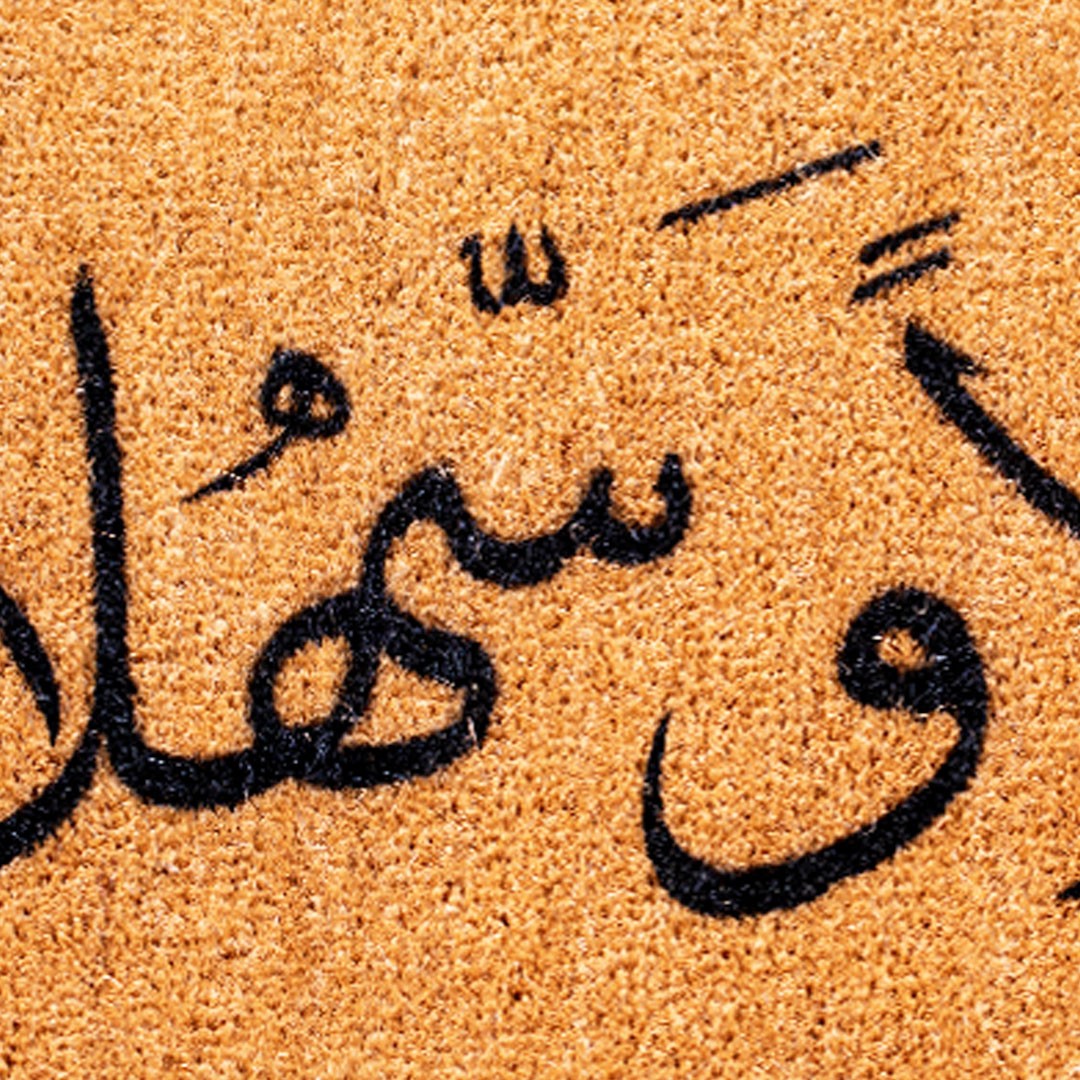 وسهلا